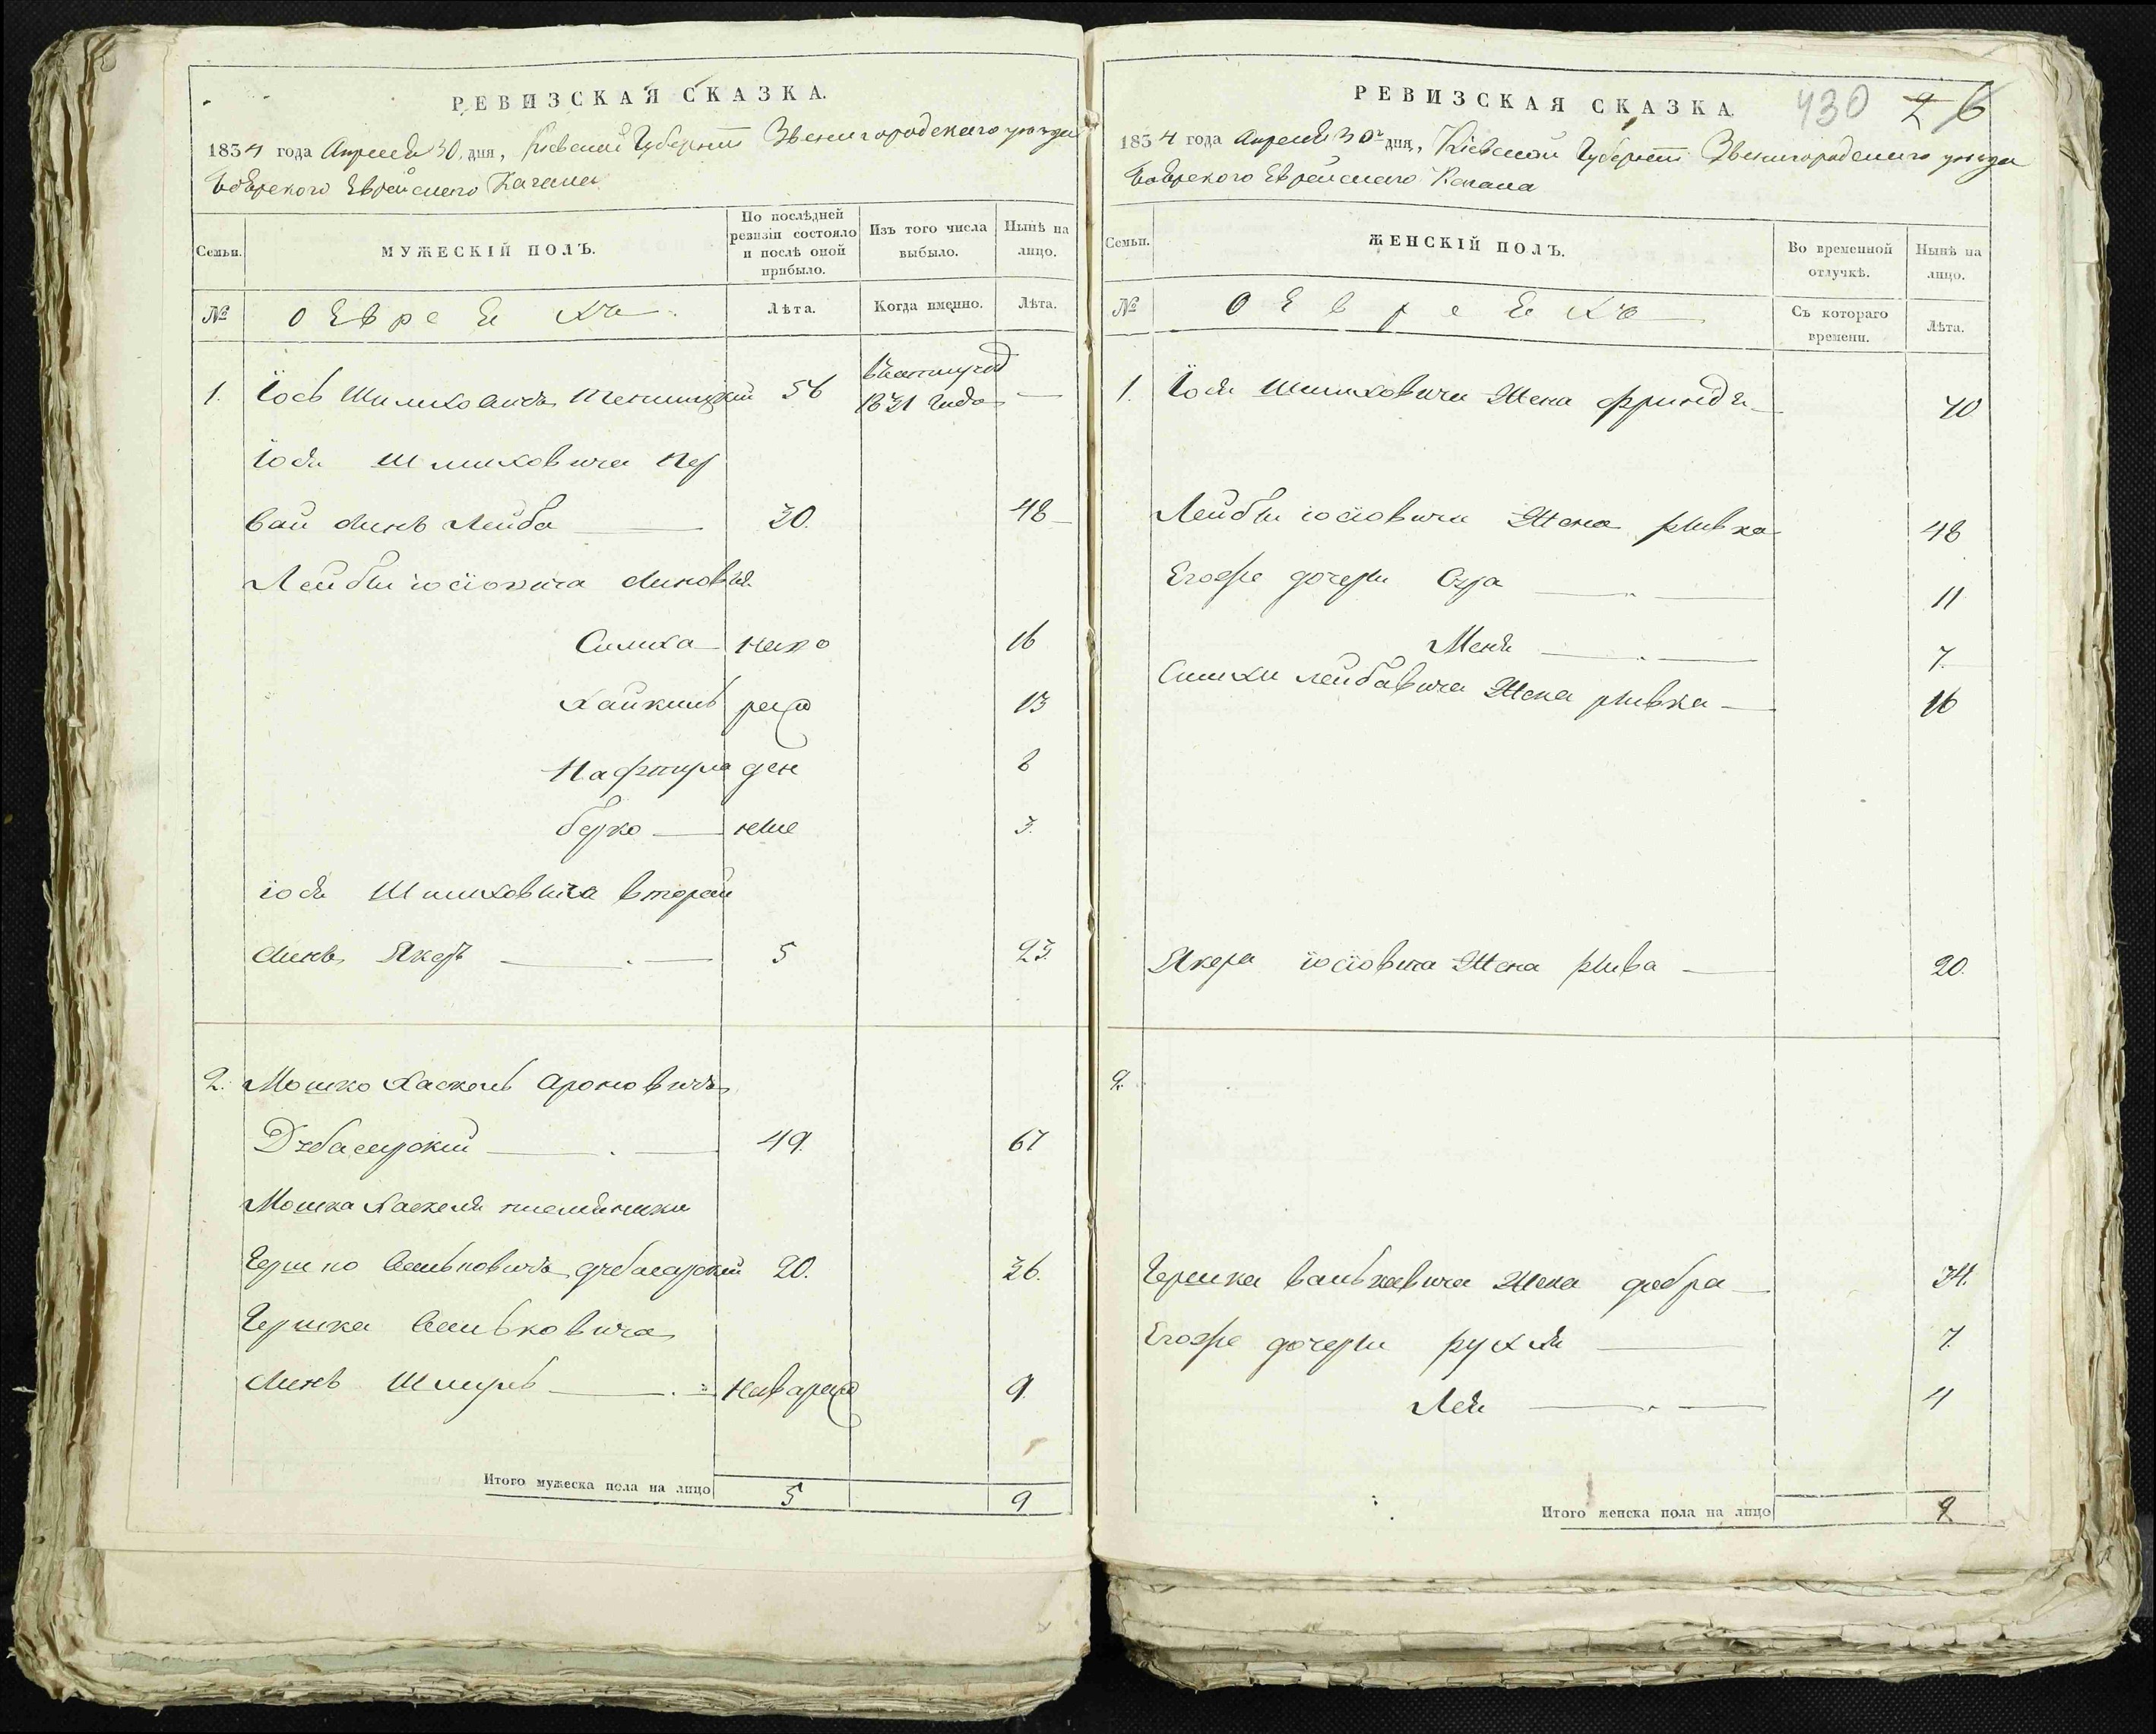 РЕВИЗСКАЯ СКАЗКА.
1834 года Апреля 30. дня, Кіевской Губерніи Звенигородскаго уезда
Боярского Еврейскаго Кагала
Семьи.
МУЖЕСКІЙ ПОЛЪ.
По послѣдней ревизіи состояло и послѣ оной прибыло.
Изъ того числа выбыло.
Нынѣ на лицо.
№
О Евреехъ
Лѣта.
Когда именно.
Лѣта.
1. Іось Шмилховичъ 56 1831 года —
Іося Шмилховича пер
вай сынъ Лейба 30. 48
Лейбы іосіовича сыновья
Симха 16
Хайкель 13
Нафтула 8
берко 3.
іося Шмилховича вторай
сынъ Якеръ 5 23.
2. Мошко Хаскель Ароновичъ
Дубасарский 49. 67
Мошка Хаскеля племянники
Гершко Вольковичъ дубасарский 20. 36.
Гершка Вольковича
сынъ Шмуль 9.
Итого мужеска пола на лицо 5 9
РЕВИЗСКАЯ СКАЗКА.
430 2 6
1834 года Апреля 30го дня, Кіевской Губерніи Звенигородскаго уезда
Боярского Еврейскаго Кагала
Семьи.
ЖЕНСКІЙ ПОЛЪ.
Во временной отлучкѣ.
Нынѣ на лицо.
№
О Евреехъ
Съ котораго времени.
Лѣта.
1. Іося Шмилховича Жена фрийда 70
Лейбы іосіовича Жена рывка 48
Егожъ дочери Сура 11
Меня 7.
Симхи лейбавича Жена рывка 16
Якера іосіовича Жена рива 20.
2.
Гершка Вольковича Жена добра 34.
Егожъ дочери рухля 7.
Лея 4
Итого женска пола на лицо 9